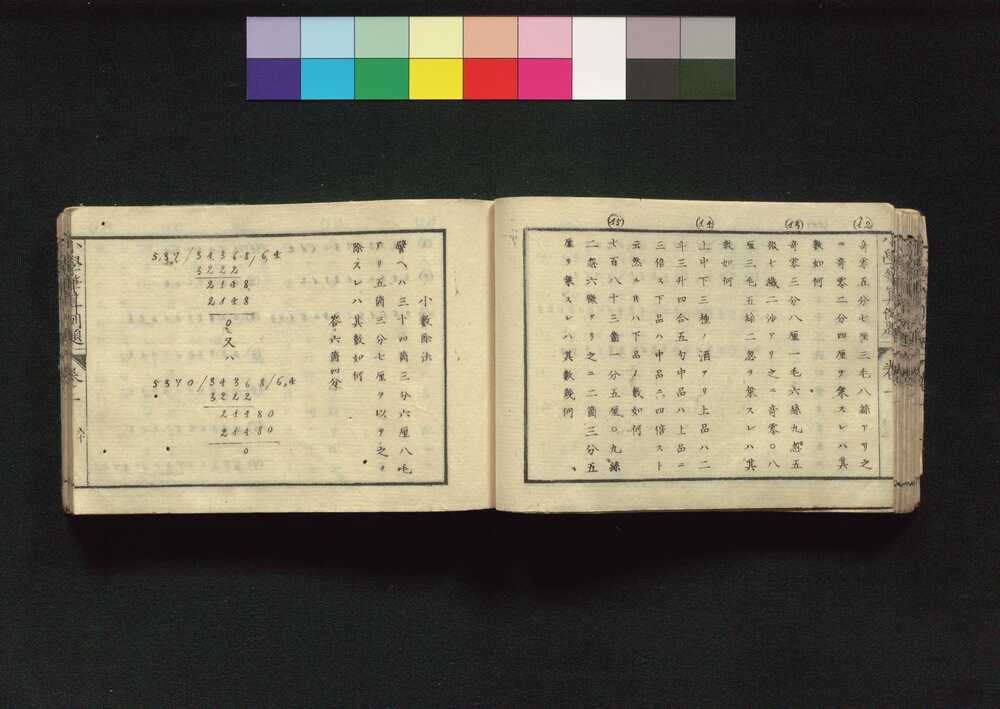 (12)
奇零五分七厘三毛八絲アリ之
ニ奇零二分四厘ヲ乗スレハ其
數如何
(13)
奇零三分八厘一毛六絲九忽五
微七纖二沙アリ之ニ奇零〇八
厘三毛五絲二忽ヲ乗スレハ其
數如何
(14)
上中下三種ノ酒アリ上品ハ二
斗三升四合五勺中品ハ上品ニ
三倍ス下品ハ中品ニ四倍スト
云然ルトキハ下品ノ數如何
(15)
七百八十三箇一分五厘〇九絲
二忽六微アリ之ニ二箇三分五
厘ヲ乗スレハ其數幾何
小數除法
譬ヘハ三十四箇三分六厘八毛
アリ五箇三分七厘ヲ以テ之ヲ
除スレハ其數如何
答六箇四分
5,37/34,368/6,4
3222
2148
2148
0
又ハ
5370/34368/6,4
3222
21480
21480
0
卷一
六十